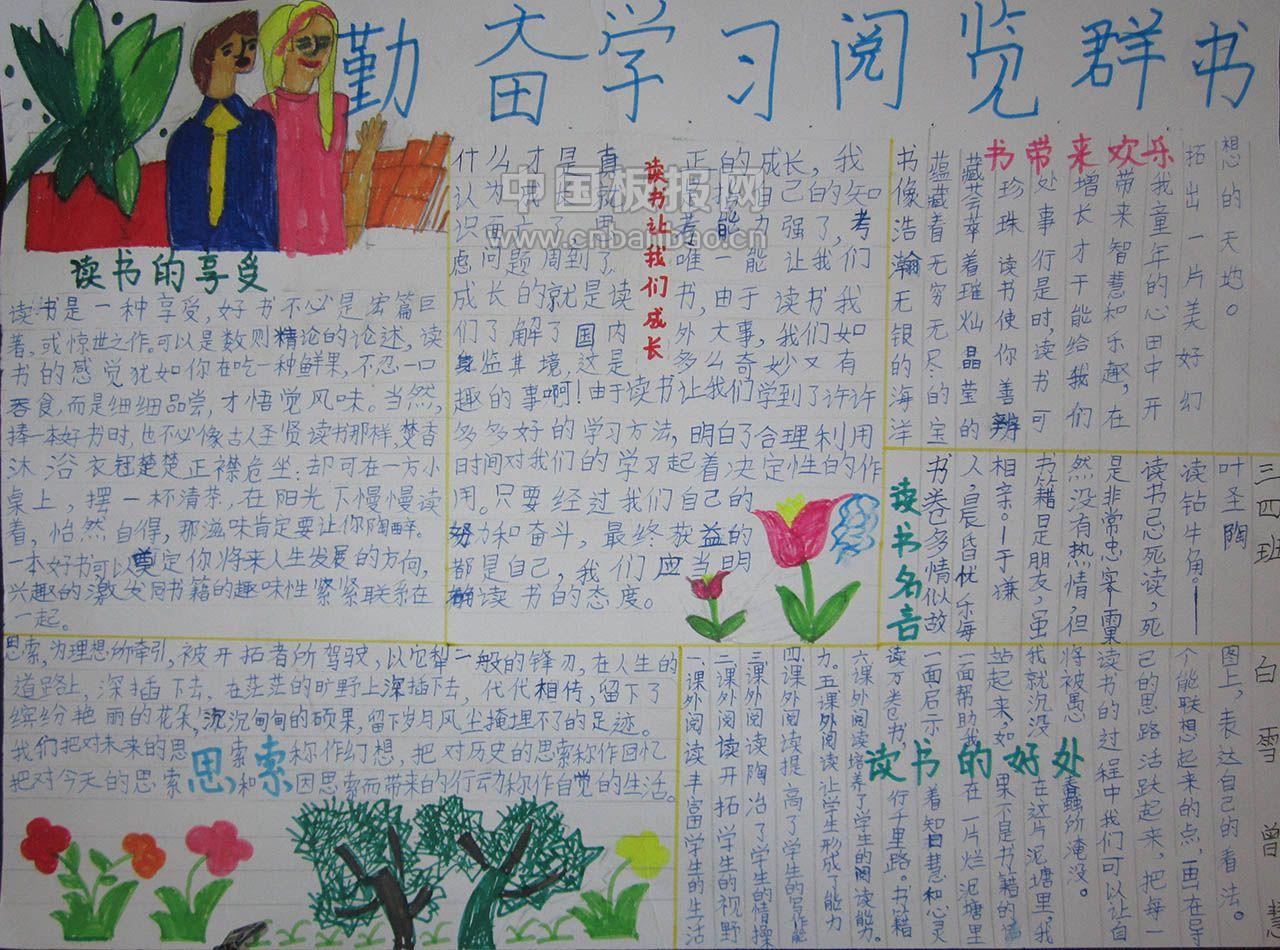 勤奋学习阅览群书
读书的享受
读书是一种享受,好书不必是宏篇巨
著,或惊世之作。可以是数则精论的论述,读
书的感觉犹如你在吃一种鲜果,不忍一口
吞食,而是细细品尝,才悟觉风味。当然,
捧一本好书时,也不必像古人圣贤读书那样,焚香
沐浴衣冠楚楚正襟危坐:却可在一方小
桌上,摆一杯清茶,在阳光下慢慢读
着,怡然自得,那滋味肯定要让你陶醉。
一本好书可以奠定你将来人生发展的方向,
兴趣的激发同书籍的趣味性紧紧联系在
一起。
读书让我们成长
什么才是真正的成长,我
认为
自己的知
识面
能力强了,考
虑问题周到了,唯一能让我们
成长的就是读书,由于读书我
们了解了国内外大事,我们如
身监其境,这是多么奇妙又有
趣的事啊!由于读书让我们学到了许许
多多好的学习方法,明白了合理利用
时间对我们的学习起着决定性的作
用。只要经过我们自己的
努力和奋斗,最终获益的
都是自己,我们应当明
确读书的态度。
书带来欢乐
书像浩瀚无银的海洋
蕴藏着无穷无尽的宝
藏荟萃着璀灿晶莹的
珍珠读书使你善辨
处事行是时,读书可
增长才干能给我们
带来智慧和乐趣,在
我童年的心田中开
拓出一片美好幻
想的天地。
读书名言
书卷多情似故
人,晨昏优乐每
相亲。—于谦
书籍是朋友,虽
然没有热情,但
是非常忠实
读书忌死读,死
读钻牛角。——
叶圣陶
三四班
思索
思索,为理想所牵引,被开拓者所驾驶,以它犁一般的锋刃,在人生的
道路上,深插下去。在茫茫的旷野上深插下去,代代相传,留下了
缤纷艳丽的花朵,沉沉甸甸的硕果,留下岁月风尘掩埋不了的足迹。
我们把对未来的思索称作幻想,把对历史的思索称作回忆
把对今天的思索和因思索而带来的行动称作自觉的生活。
读书的好处
一课外阅读丰富学生的生活
二课外阅读开拓学生的视野
三课外阅读陶冶了学生的情操
四课外阅读提高了学生的写作能
力。五课外阅读让学生形成了能力
六课外阅读培养了学生的阅读能力。
读万卷书,行千里路。书籍
一面启示着知日慧和心灵
一面帮助我在一片烂泥塘里
站起来,如果不是书籍的话
我就沉没在这片泥塘里,我
将被愚蠢所淹没。
读书的过程中我们可以让自
己的思路活跃起来,把每一
个能联想起来的点,画在导
图上,表达自己的看法。
白雪 曾慧
中国板报网
www.cnbanbao.cn